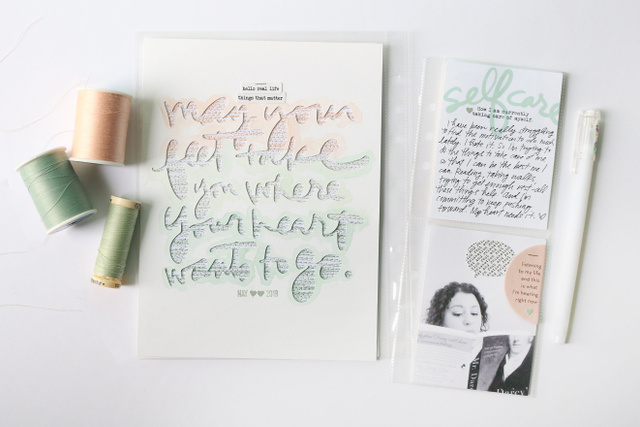 hello real life
things that matter
may your
feet take
you where
your heart
wants to go.
MAY 2019
self care
How I am currently
taking care of myself.
I have been really struggling
to find the motivation to do much
lately. I hate it, so I'm trying to
do try things to take care of me
so that I can be the best me I
can. Reading, taking walks,
trying to get enough rest all
these things help. And I'm
committing to keep pushing
forward. My heart needs it.
Listening
to my life
and this
is what
I'm hearing
right now
Mr. Darc
Darcy's